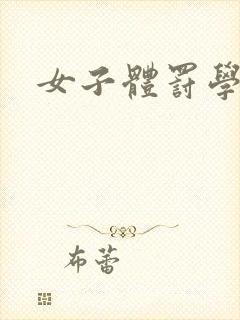 女子體罰學
布蕾